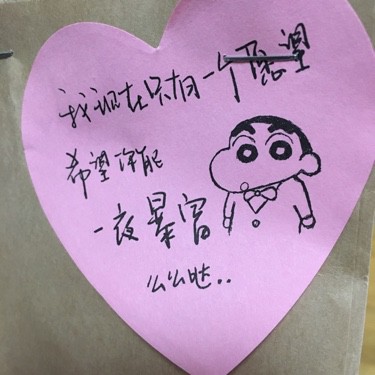 我现在只有一个愿望
希望你能
一夜暴富
么么哒..